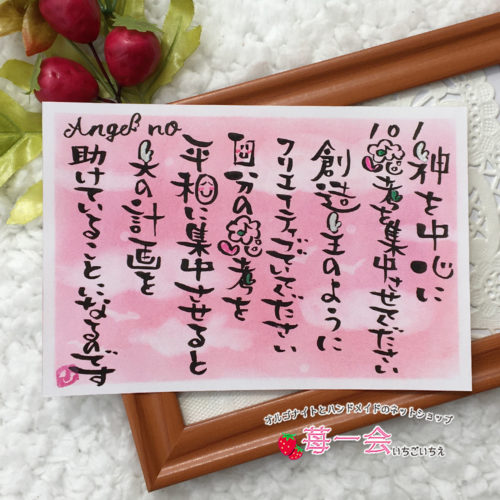 Angel no
101
神を中心に
思考を集中させてください
創造主のように
クリエイティブでいてください
自分の思考を
平和に集中させると
天の計画を
助けていることになるのです
オルゴナイトとハンドメイドのネットショップ
苺一会
いちごいちえ